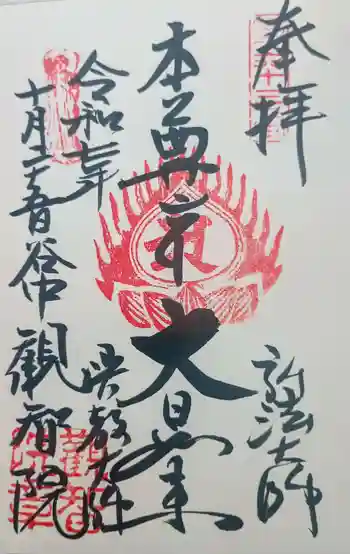 奉拝
弘法大師
本尊
大日如来
興教大師
令和七年
十月二十五日谷中
観智院